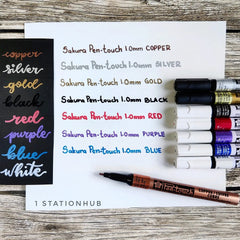 copper
silver
gold
black
red
purple
blue
white
Sakura Pen-touch 1.0mm COPPER
Sakura Pen-touch 1.0mm SILVER
Sakura Pen-touch 1.0mm GOLD
Sakura Pen-touch 1.0mm BLACK
Sakura Pen-touch 1.0mm RED
Sakura Pen-touch 1.0mm PURPLE
Sakura Pen-touch 1.0mm BLUE
1 STATIONHUB